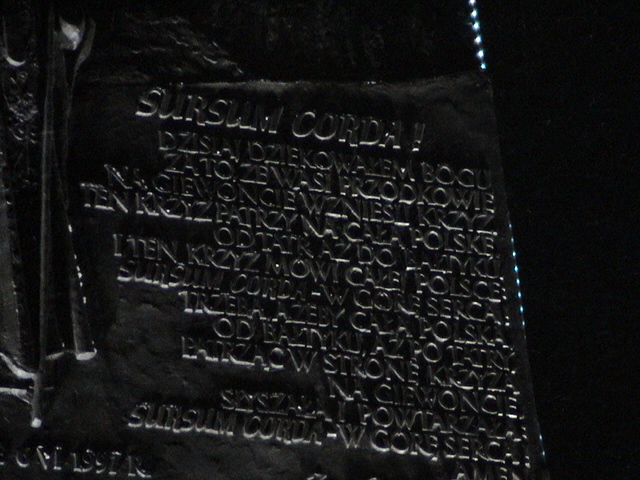 SURSUM CORDA!
DZISIAJ DZIĘKOWAŁEM BOGU
ZA TO, ŻE WASI PRZODKOWIE
NA GIEWONCIE WZNIEŚLI KRZYŻ
TEN KRZYŻ PATRZY NA CAŁĄ POLSKĘ
OD TATR AŻ DO BAŁTYKU
I TEN KRZYŻ MÓWI CAŁEJ POLSCE:
SURSUM CORDA - W GÓRĘ SERCA!
TRZEBA, AŻEBY CAŁA POLSKA,
OD BAŁTYKU AŻ PO TATRY,
PATRZĄC W STRONĘ KRZYŻA
NA GIEWONCIE
SŁYSZAŁA I POWTARZAŁA:
SURSUM CORDA - W GÓRĘ SERCA!
AMEN
6 VI 1997 R.